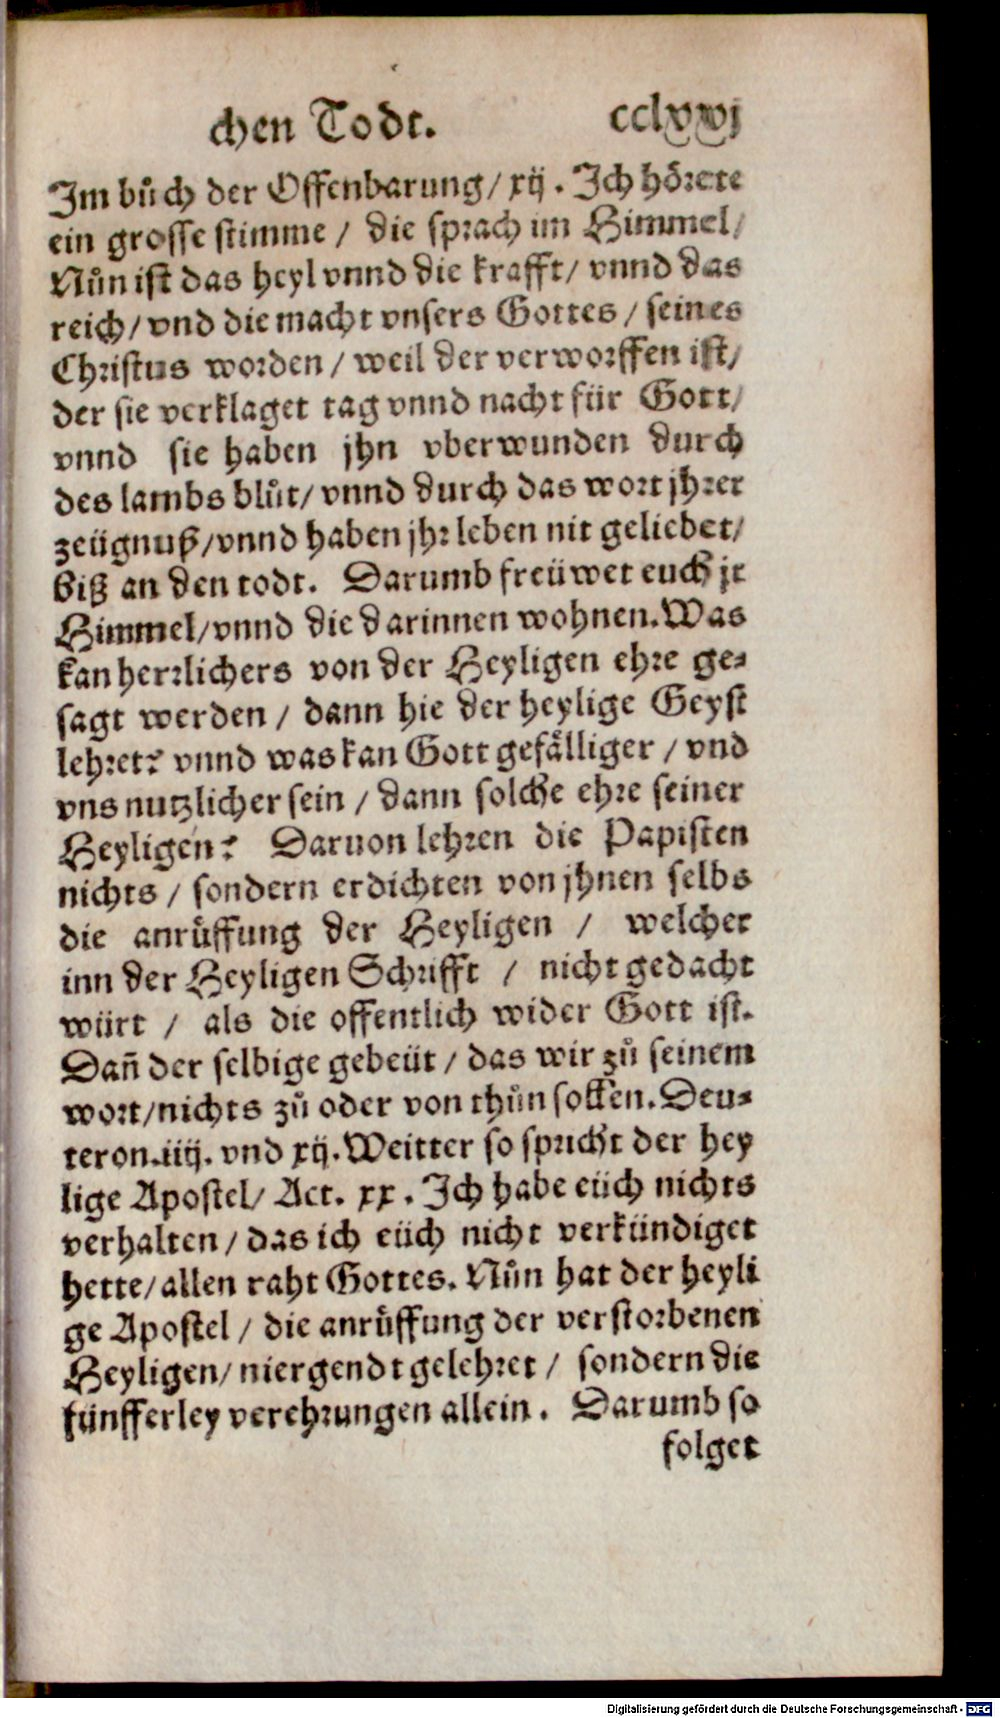 chen Todt. cclxxvj
Im bůch der Offenbarung/ xij. Ich hörete
ein grosse stimme / die sprach im Himmel/
Nůn ist das heyl vnnd die krafft/ vnnd das
reich/ vnd die macht vnsers Gottes / seines
Christus worden / weil der verworffen ist/
der sie verklaget tag vnnd nacht für Gott/
vnnd sie haben jhn vberwunden durch
des lambs blůt/ vnnd durch das wort jhrer
zeügnuß/vnnd haben jhr leben nit geliebet/
biß an den todt. Darumb freüwet euch jr
Himmel/vnnd die darinnen wohnen. Was
kan herrlichers von der Heyligen ehre ge-
sagt werden / dann hie der heylige Geyst
lehret? vnnd was kan Gott gefälliger / vnd
vns nutzlicher sein / dann solche ehre seiner
Heyligen? Daruon lehren die Papisten
nichts / sondern erdichten von jhnen selbs
die anrůffung der Heyligen / welcher
inn der Heyligen Schrifft / nicht gedacht
würt / als die offentlich wider Gott ist.
Dañ der selbige gebeüt / das wir zů seinem
wort/nichts zů oder von thůn sollen. Deu-
teron.iiij. vnd xij. Weitter so spricht der hey
lige Apostel/ Act. xx. Ich habe eüch nichts
verhalten / das ich eüch nicht verkündiget
hette/allen raht Gottes. Nůn hat der heyli
ge Apostel / die anrůffung der verstorbenen
Heyligen/ niergendt gelehret / sondern die
fünfferley verehrungen allein. Darumb so
folget
Digitalisierung gefördert durch die Deutsche Forschungsgemeinschaft - DFG